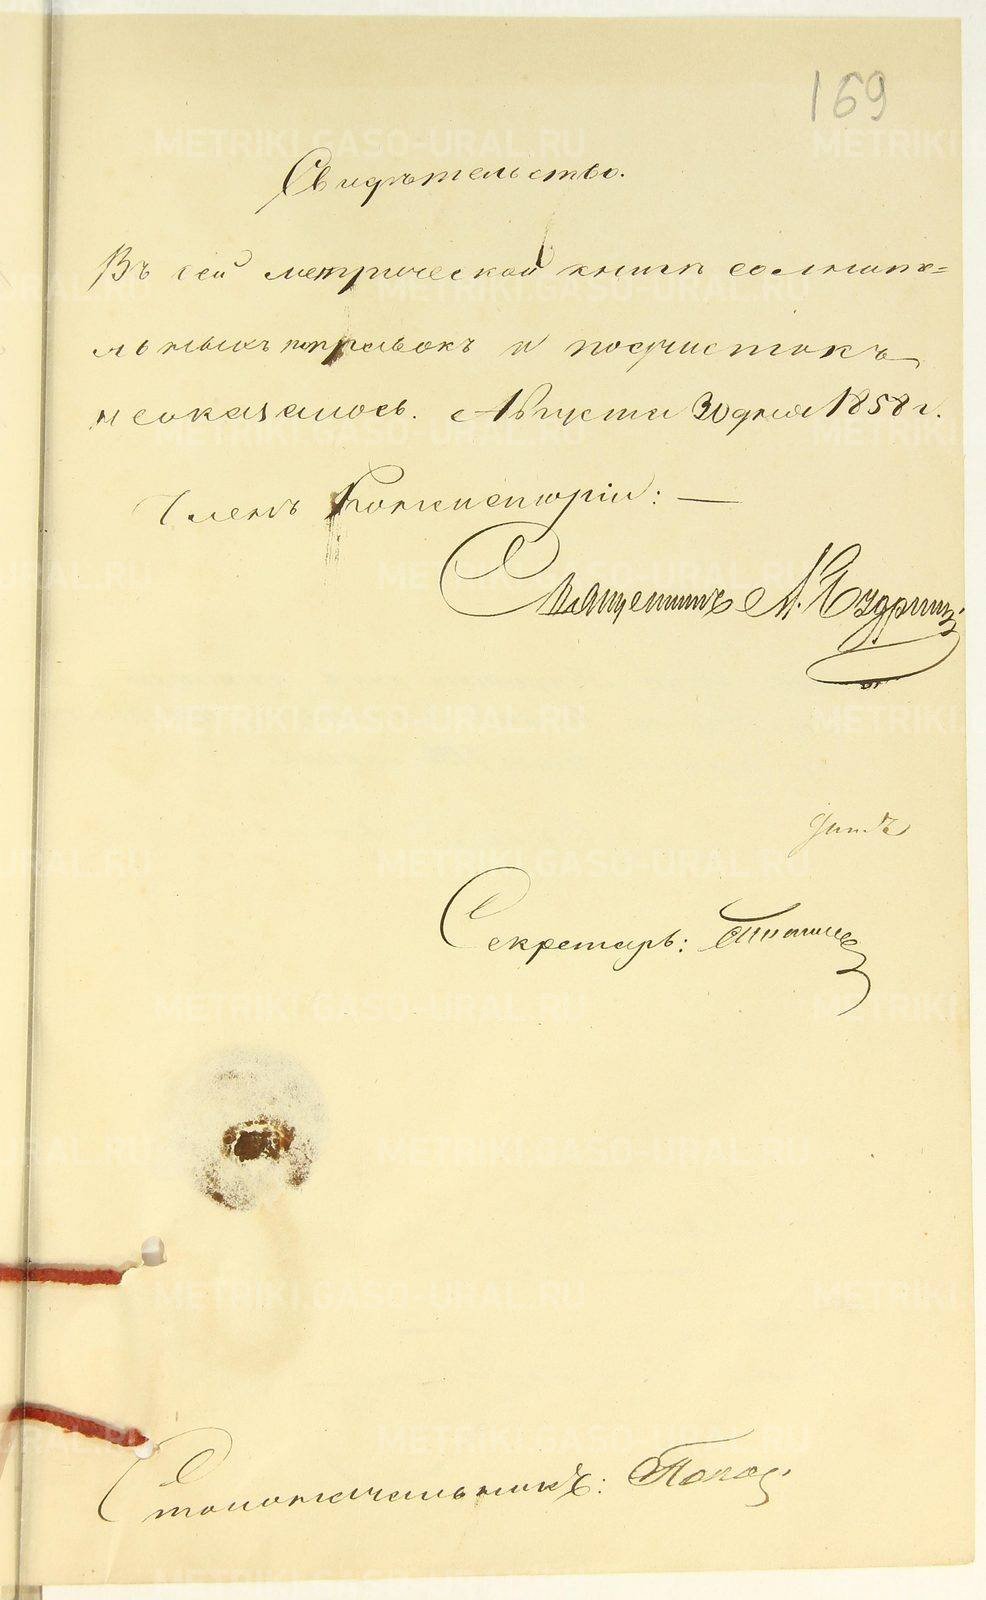 169
Свидѣтельство.
Въ сей метрической книгѣ сомните=
льныхъ поправокъ и подчистокъ
неоказалось. Августа 30 дня 1858 г.
Членъ Консисторіи: —
Священникъ А.
Секретарь:
Столоначальникъ: Попов